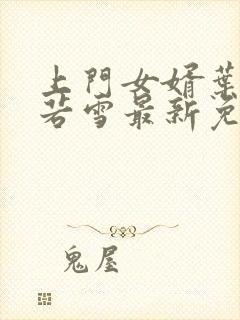 上門女婿葉
若雪最新免
鬼屋